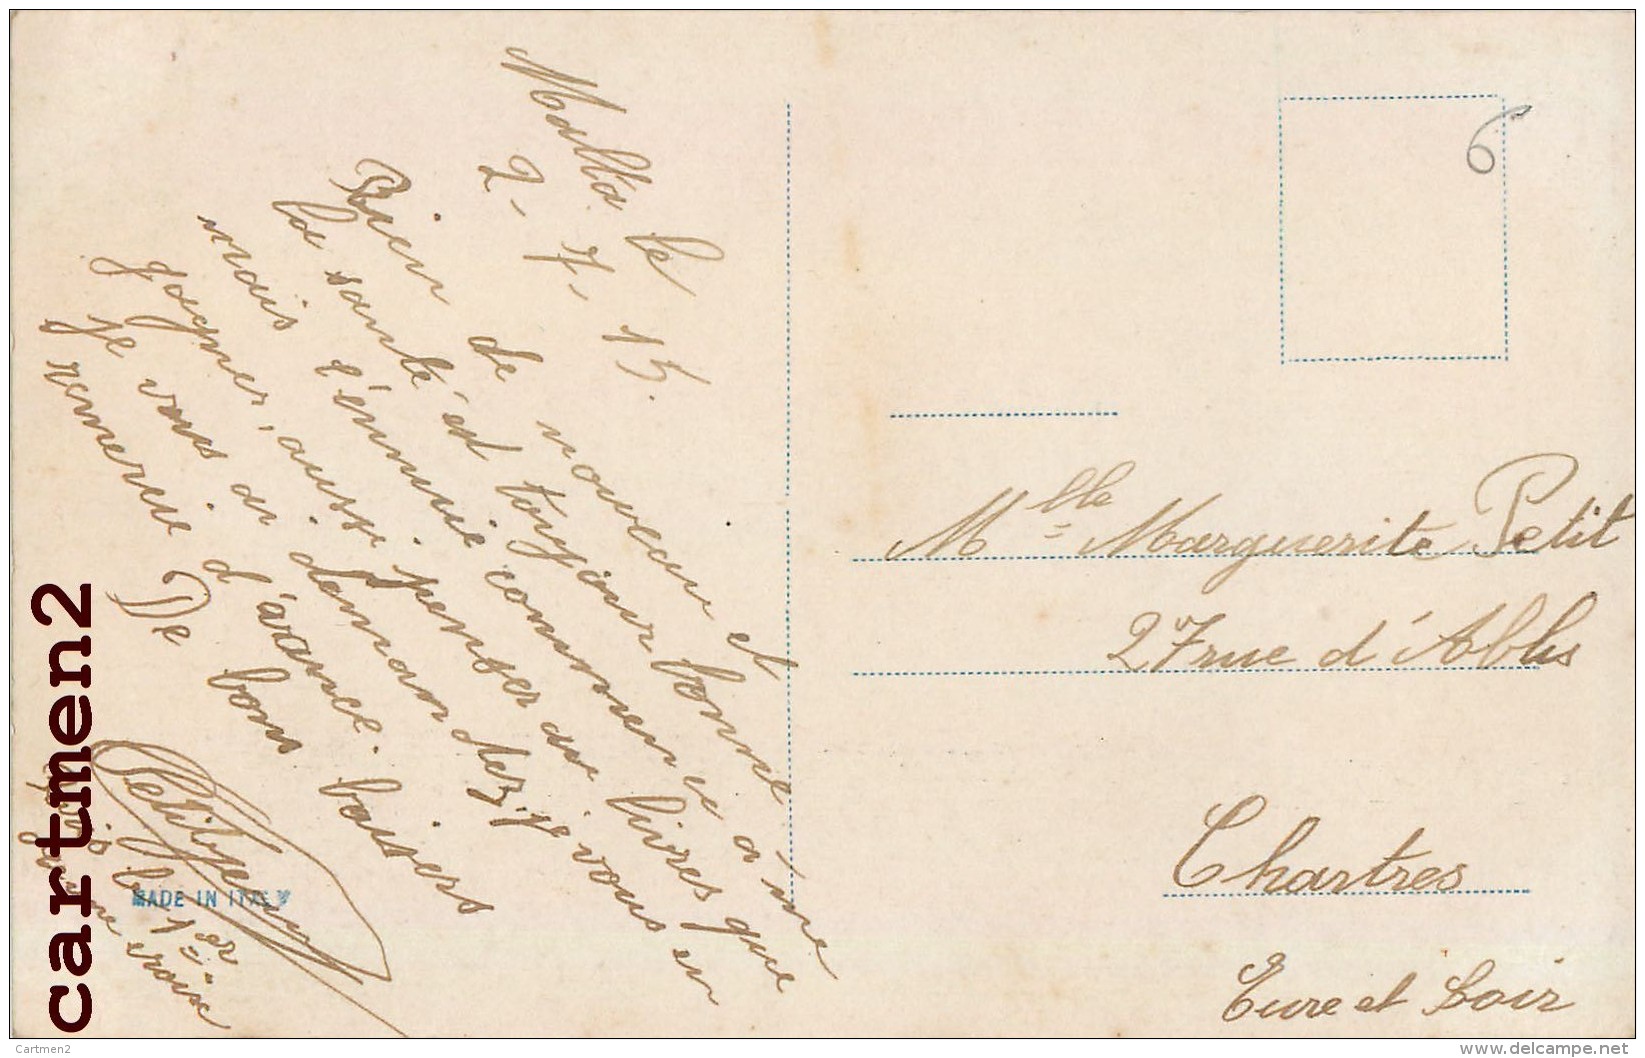 Malta le
2-7-15.
Rien de nouveau et
la santé est toujour bonne
mais l'ennuie commence à me
gagner, aussi penser au livres que
je vous ai demandez, je vous en
remercie d'avance.
De bons baisers
Petitjean
1er
MADE IN ITALY
6
Mlle Marguerite Petit
27 rue d'Ablis
Chartres
Eure et Loir
cartmen2
Cartmen2
www.delcampe.net